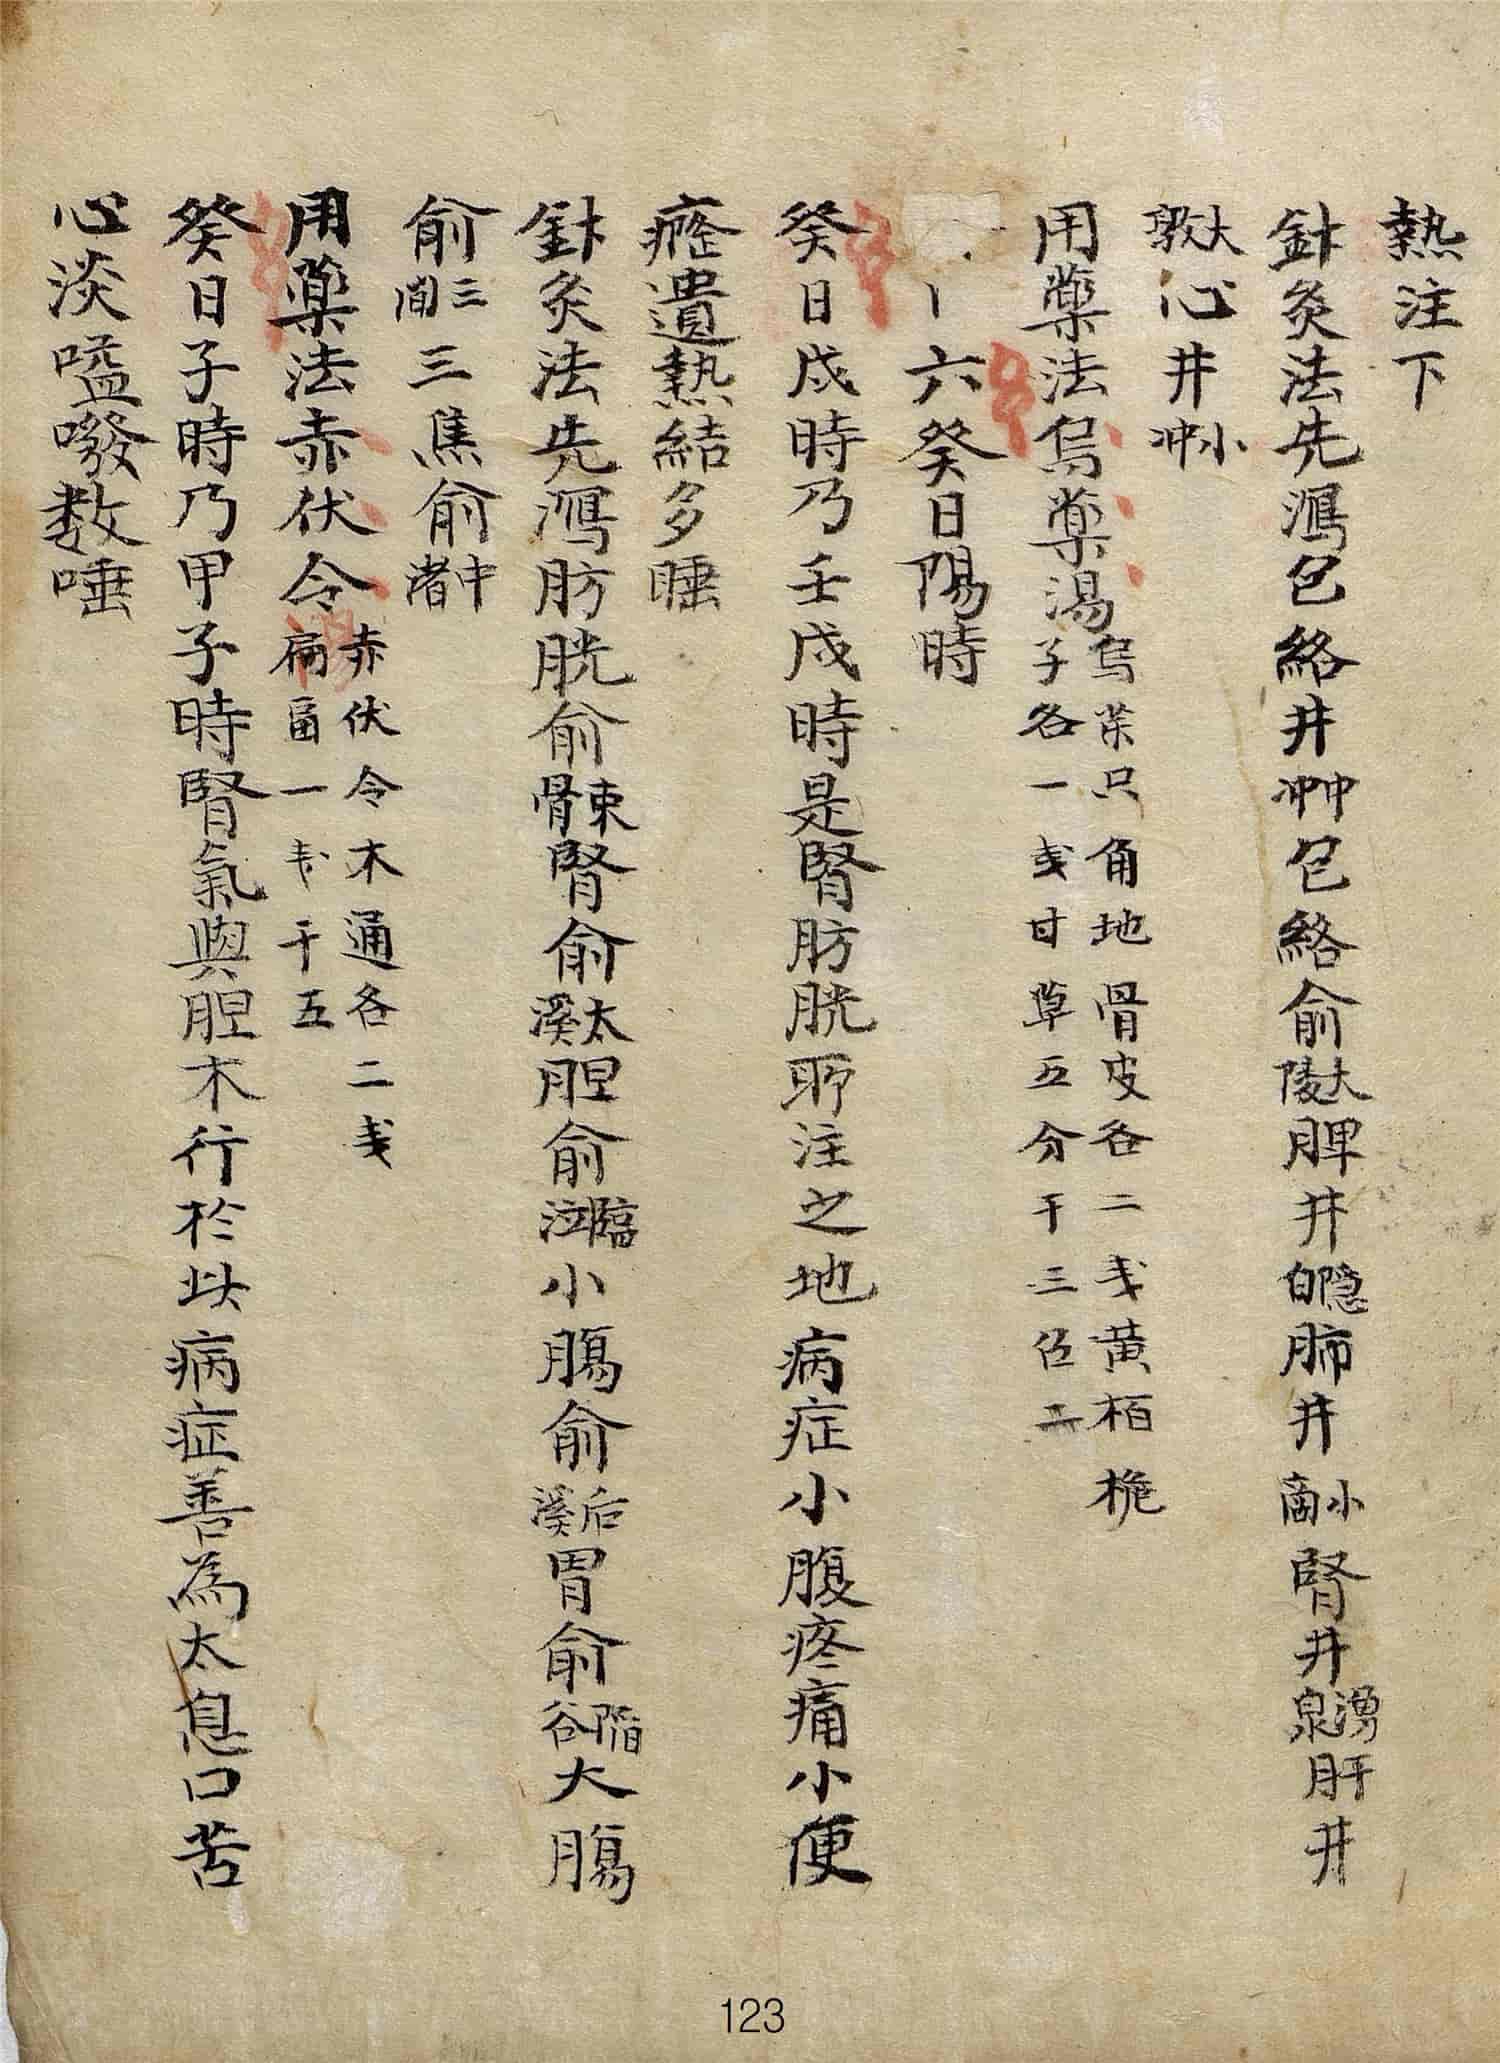 熱注下
針灸法先瀉包絡井中冲包絡俞大陵脾井隐白肺井小商腎井湧泉肝井
大敦心井小冲
用藥法烏藥湯烏菜只角地骨皮各二戋黄栢梔子各一戋甘草五分干三召二
六癸日陽時
癸日戍時乃壬戍時是腎肪胱所注之地病症小腹疼痛小便
癃遺熱結多睡
針灸法先瀉肪胱俞束骨腎俞太溪胆俞臨泣小腸俞后溪胃俞陷谷大腸
俞三间三焦俞中渚
用藥法赤伏令湯赤伏令木通各二戋扁畐一戋干五
癸日子時乃甲子時腎氣與胆木行於此病症善為太息口苦
心淡嗌噯数唾
123